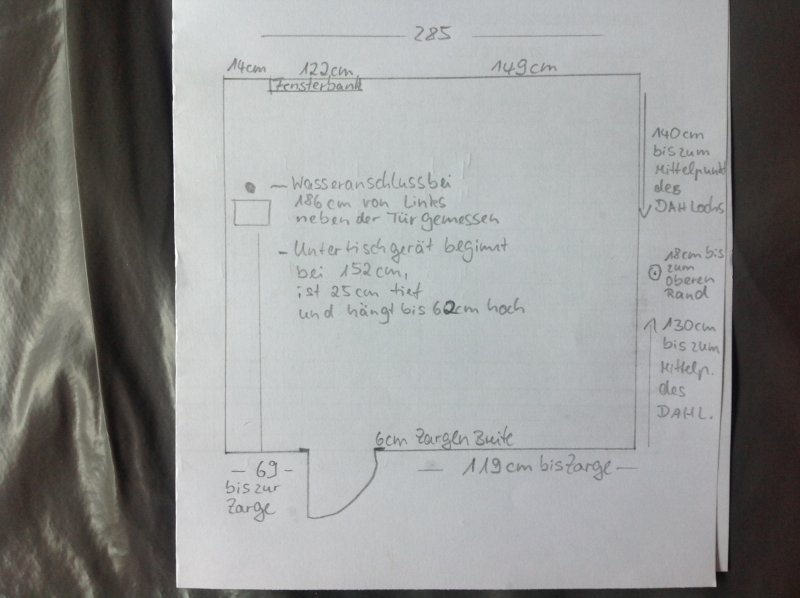 285
14cm 122cm 149cm
Fensterbank
140cm
bis zum
Mittelpunkt
des
DAHLochs
- Wasseranschluss bei
186cm von Links
neben der Tür gemessen
- Untertischgerät beginnt
bei 152cm,
ist 25cm tief
und hängt bis 62cm hoch
18cm bis
zum
Oberen
Rand
130cm
bis zum
Mittelp.
des
DAHL.
6cm Zargen Breite
- 69 -
bis zur
Zarge
- 119cm bis Zarge -